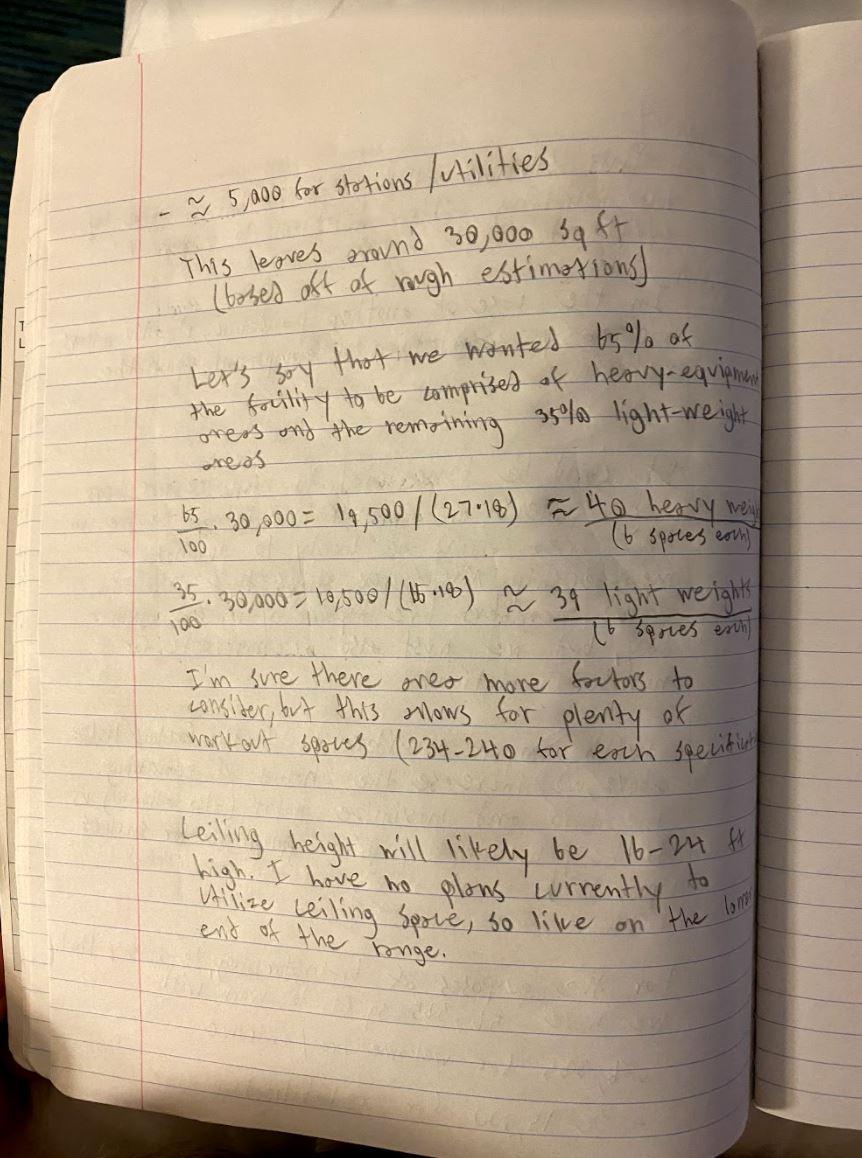 - ≈ 5,000 for stations / utilities
This leaves around 30,000 sq ft
(based off of rough estimations)
Let's say that we wanted 65% of
the facility to be comprised of heavy-equipmen
areas and the remaining 35% light-weight
areas
65/100 · 30,000 = 19,500 / (27·18) ≈ 40 heavy wei
(6 spaces each)
35/100 · 30,000 = 10,500 / (15·18) ≈ 39 light weights
(6 spaces each)
I'm sure there are more factors to
consider, but this allows for plenty of
workout spaces (234-240 for each specificat
Ceiling height will likely be 16-24 ft
high. I have no plans currently to
utilize ceiling space, so like on the lower
end of the range.